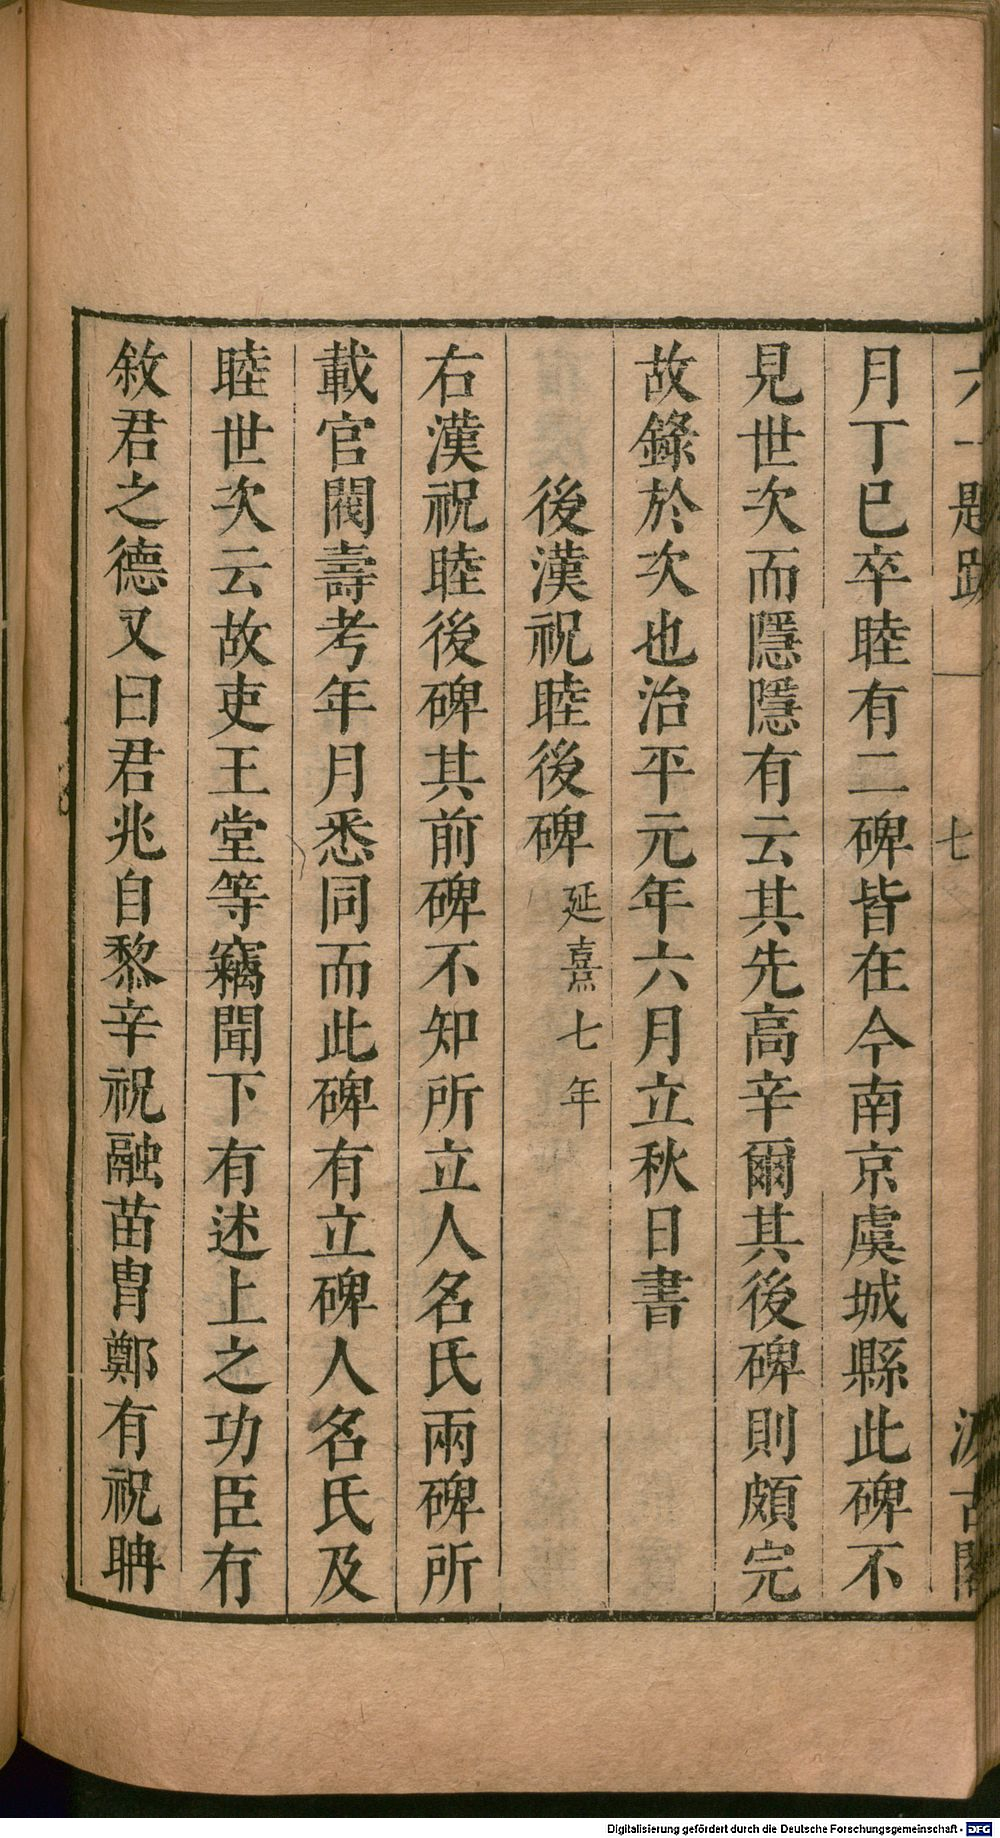 六一題跋 七 汲古閣
月丁巳卒睦有二碑皆在今南京虞城縣此碑不
見世次而隱隱有云其先高辛爾其後碑則頗完
故錄於次也治平元年六月立秋日書
後漢祝睦後碑 延熹七年
右漢祝睦後碑其前碑不知所立人名氏兩碑所
載官閥壽考年月悉同而此碑有立碑人名氏及
睦世次云故吏王堂等竊聞下有述上之功臣有
敘君之德又曰君兆自黎辛祝融苗胄鄭有祝聃
Digitalisierung gefördert durch die Deutsche Forschungsgemeinschaft - DFG